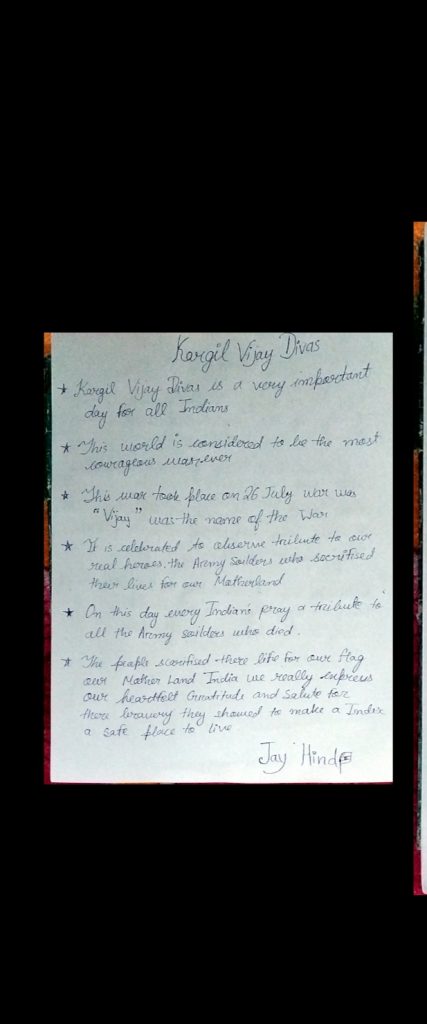 Kargil Vijay Divas
★ Kargil Vijay Divas is a very important
day for all Indians
★ This world is considered to be the most
courageous war ever
★ This war took place on 26 July war was
"Vijay" was the name of the War
★ It is celebrated to observe tribute to our
real heroes, the Army Soilders who sacrifised
their lives for our Matherland
★ On this day every Indians pray a tribute to
all the Army soilders who died.
★ The people scarifised there life for our flag
our Mother Land India we really express
our heartfelt Gratitude and Salute for
there bravery they showed to make a India
a safe place to live
Jay Hind